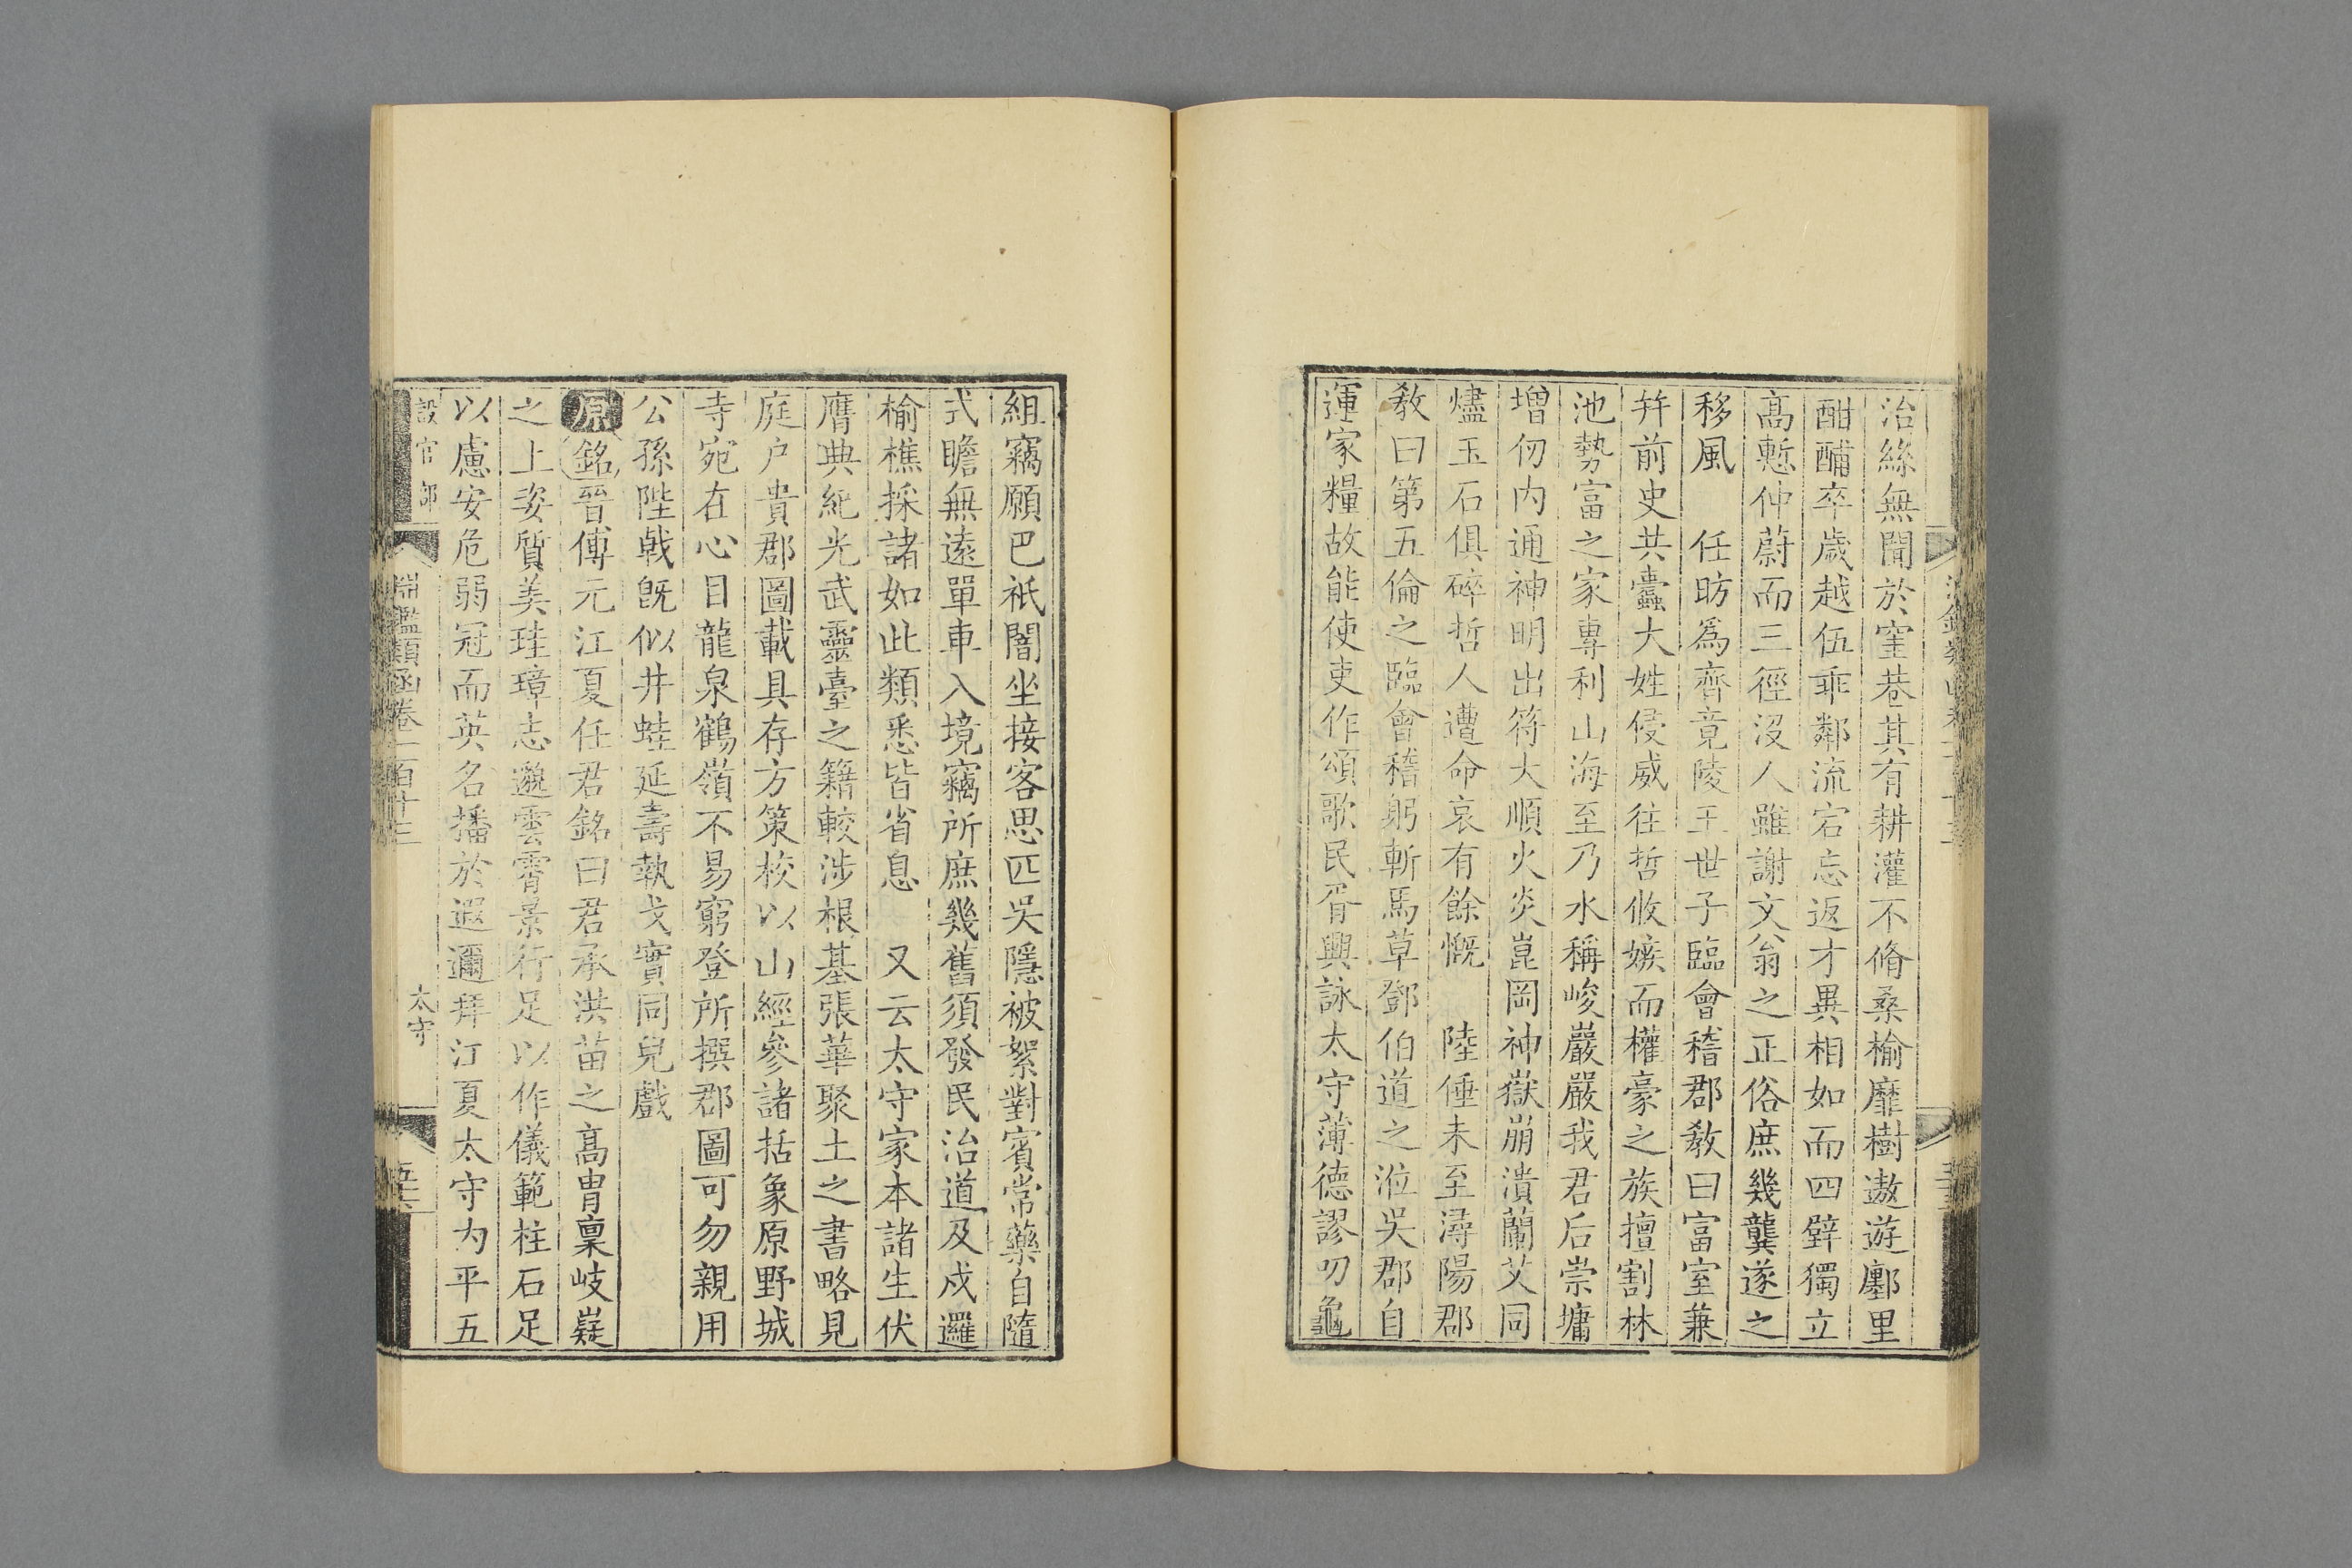 治絲無聞於窐巷其有耕灌不脩桑榆靡樹遨遊鄽里
酣酺卒歲越伍乖鄰流宕忘返才異相如而四壁獨立
高慙仲蔚而三徑沒人雖謝文翁之正俗庶幾龔遂之
移風　任昉爲齊竟陵王世子臨會稽郡教曰富室兼
并前史共蠹大姓侵威往哲攸嫉而權豪之族擅割林
池勢富之家專利山海至乃水稱峻巖嚴我君后崇墉
增仞内通神明出符大順火炎崑岡神嶽崩潰蘭艾同
燼玉石俱碎哲人遭命哀有餘慨　陸倕未至潯陽郡
教曰第五倫之臨會稽躬斬馬草鄧伯道之涖吳郡自
運家糧故能使吏作頌歌民胥興詠太守薄德謬叨龜
組竊願巴祇闇坐接客思匹吳隱被絮對賓常藥自隨
式瞻無遠單車入境竊所庶幾舊須發民治道及戍邏
榆樵採諸如此類悉皆省息　又云太守家本諸生伏
膺典紀光武靈臺之籍較涉根基張華聚土之書略見
庭户貴郡圖載具存方策校以山經參諸括象原野城
寺宛在心目龍泉鶴嶺不易窮登所撰郡圖可勿親用
公孫陛戟既似井蛙延壽執戈實同兒戲
原銘晉傅元江夏任君銘曰君承洪苗之高胄稟岐嶷
之上姿質美珪璋志邈雲霄景行足以作儀範柱石足
以慮安危弱冠而英名播於遐邇拜江夏太守为平五
設官部
淵鑑類函卷一百十三
太守